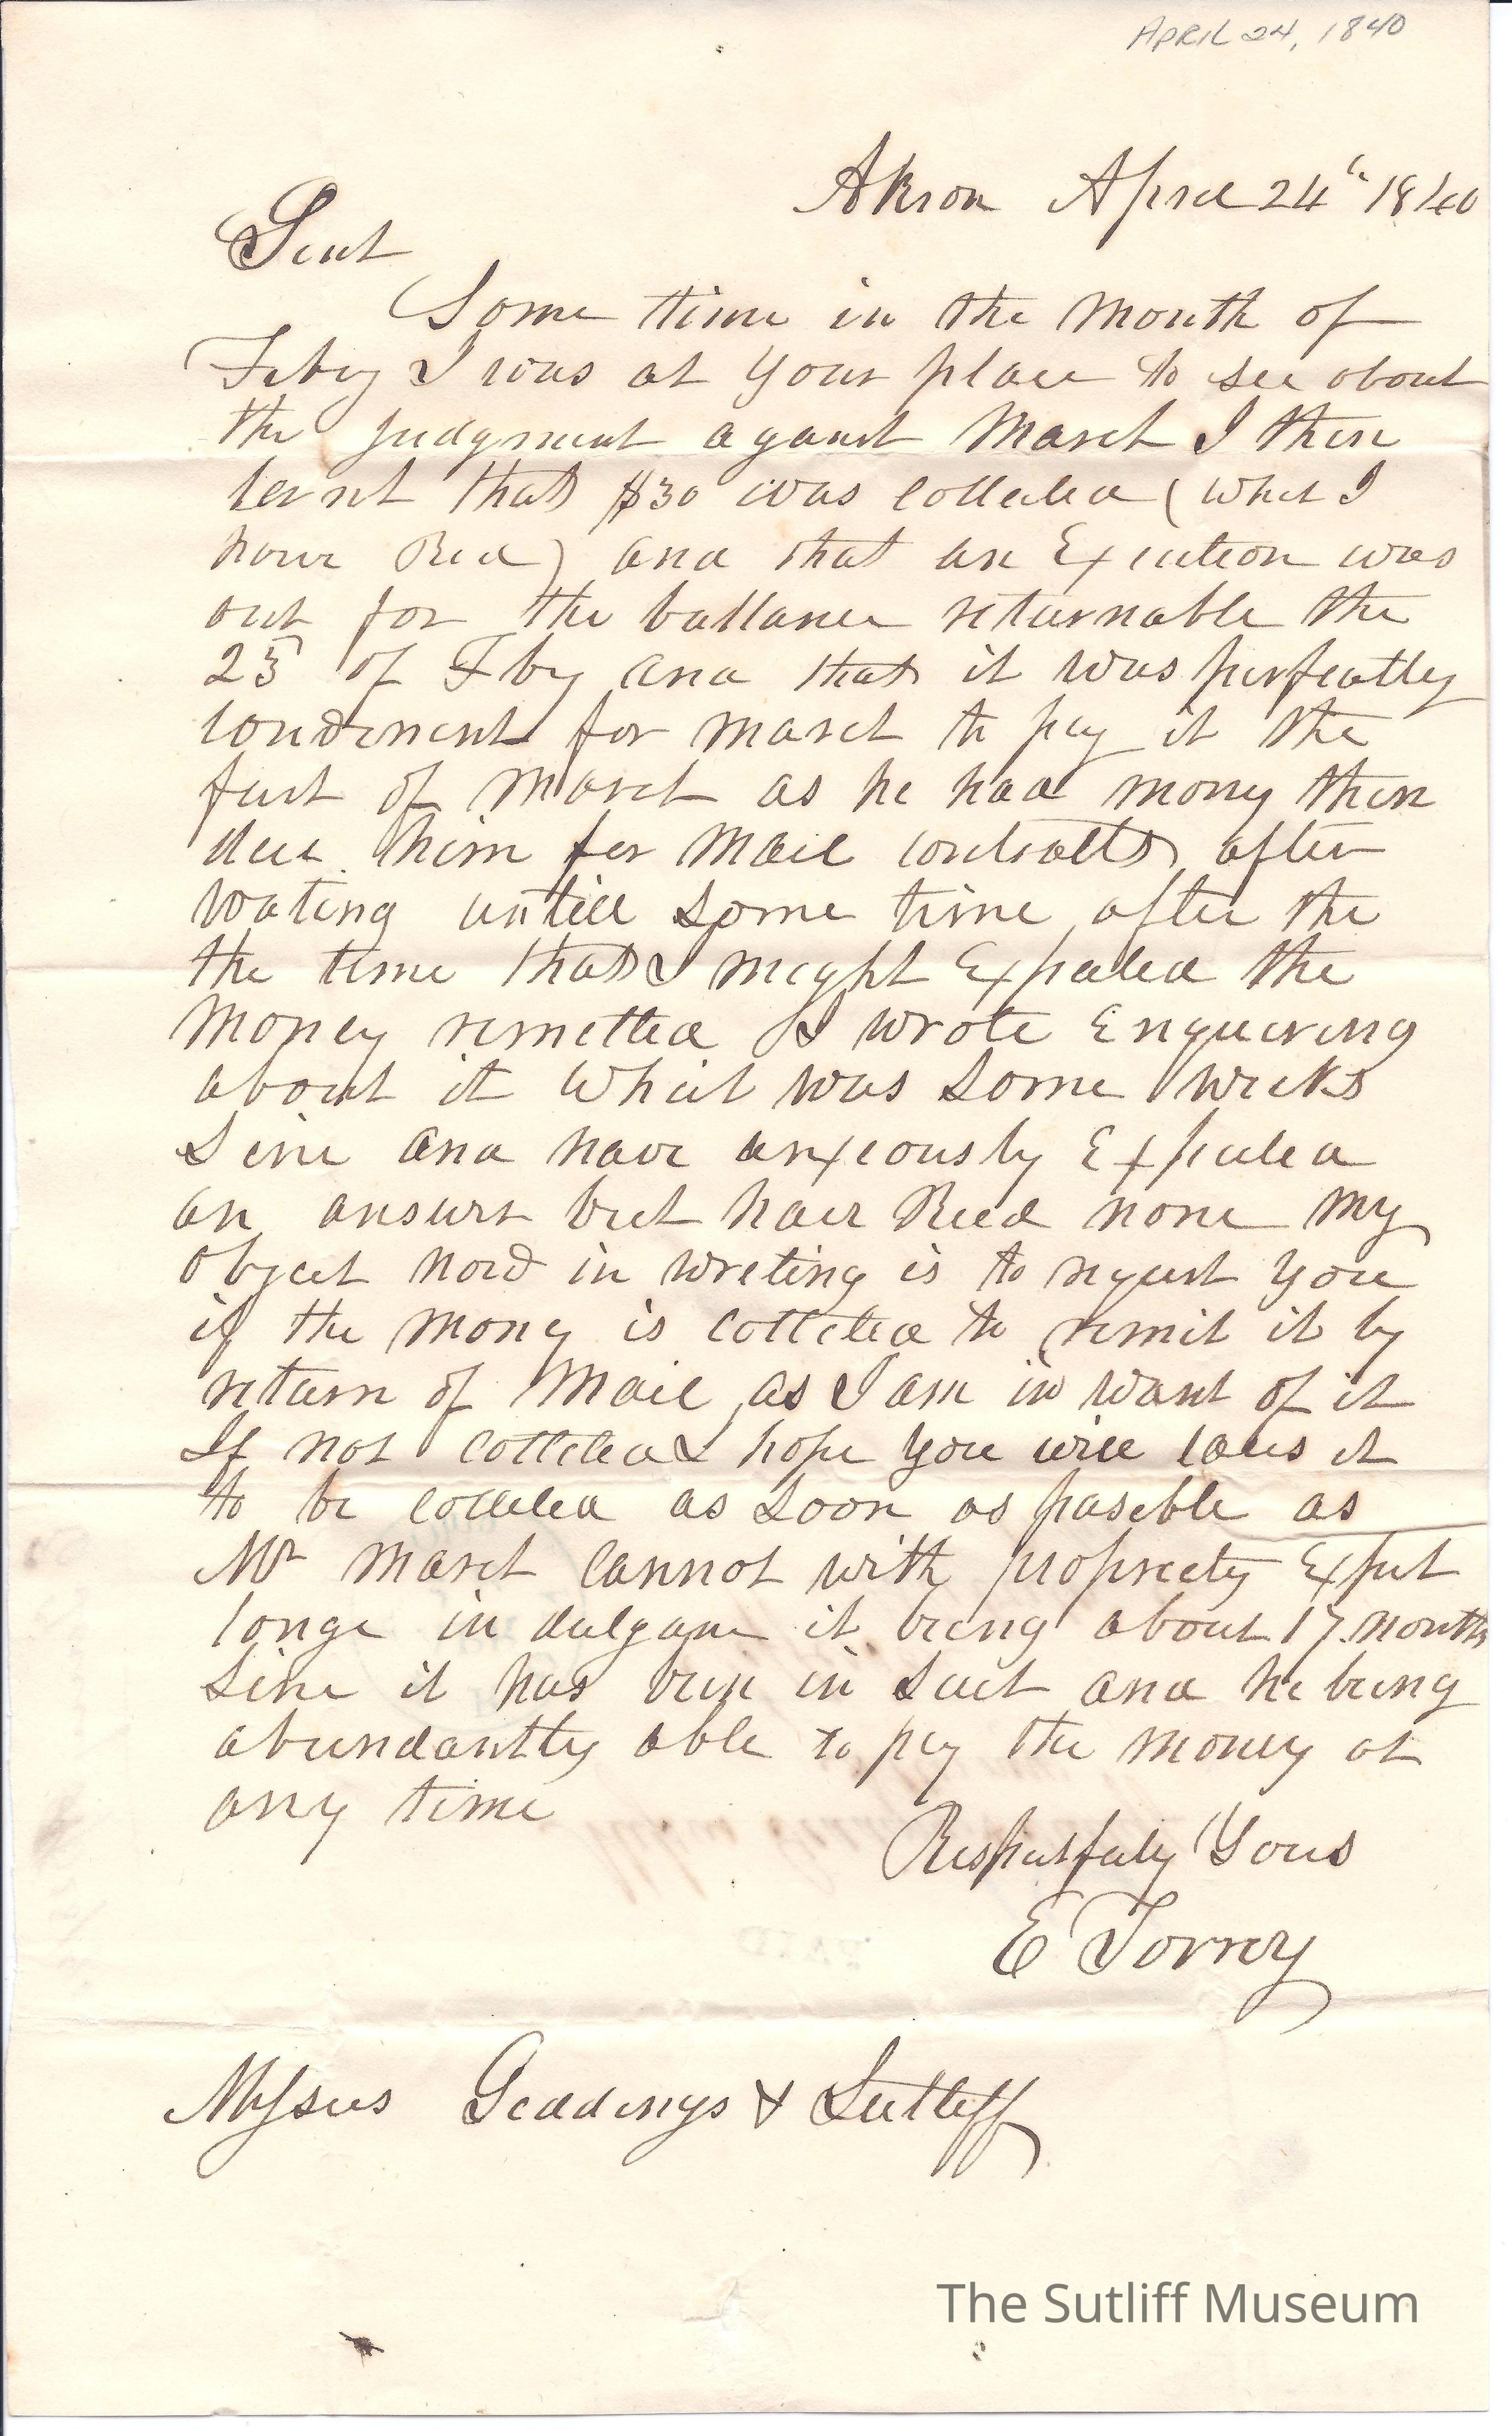 APRIL 24, 1840
Akron April 24th 1840
Gent
Some time in the Month of
Feby I was at your place to see about
the judgment against March I then
lernt that $30 was collected (which I
have Recd) and that an Execution was
out for the ballance returnable the
25 of Feby and that it was perfeatly
convenient for March to pay it the
first of March as he had mony then
due him for Mail contracts after
wating untill some time after the
the time that I might Expected the
Money remitted I wrote Enquiering
about it which was some weeks
Sine and have anxiously Expected
an answer but have Recd none My
object now in writing is to request you
if the mony is collected to remit it by
return of Mail as I am in want of it
If not collected I hope you will caus it
to be collected as soon as posible as
Mr March cannot with propriety Expect
longe indulgane it being about 17 months
Sine it has bein in Suit and he being
abundantly able to pay the money at
any time
Respectfuly Yours
E Torrey
Messrs Geddings & Sutliff
The Sutliff Museum